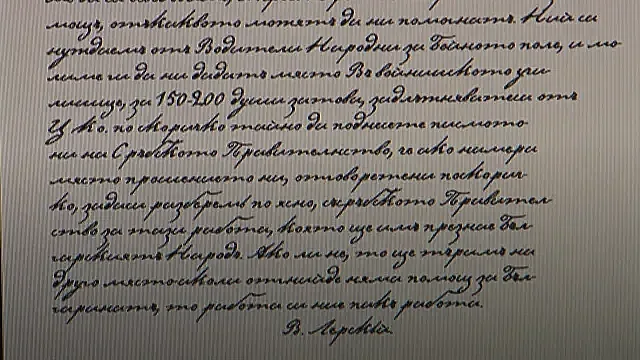 мощъ, отъ каквото можятъ да ни помогнатъ. Ний са
нуждаемъ отъ Водители Народни за бойното поле, и мо-
лиме ги да ни дадатъ място въ войнишкото учи-
лище, за 150-200 души затова, задлъжнявателни отъ
Ц. Ко. по скоричко тайно да поднесете писмото
ни на Сръбското Правителнство, че ако намери
място прошението ни, отговоретени поскорич-
ко, задаси разберемъ по ясно, съ сръбското Правител-
ство за тази работа, която ще имъ презнае Бъл-
гарскиятъ Народъ. Ако ли не, то ще търимъ на
друго място и коли отнийде няма помощ за бъл-
гаринатъ, то работа си ние пакъ работа.
В. Лерскій.